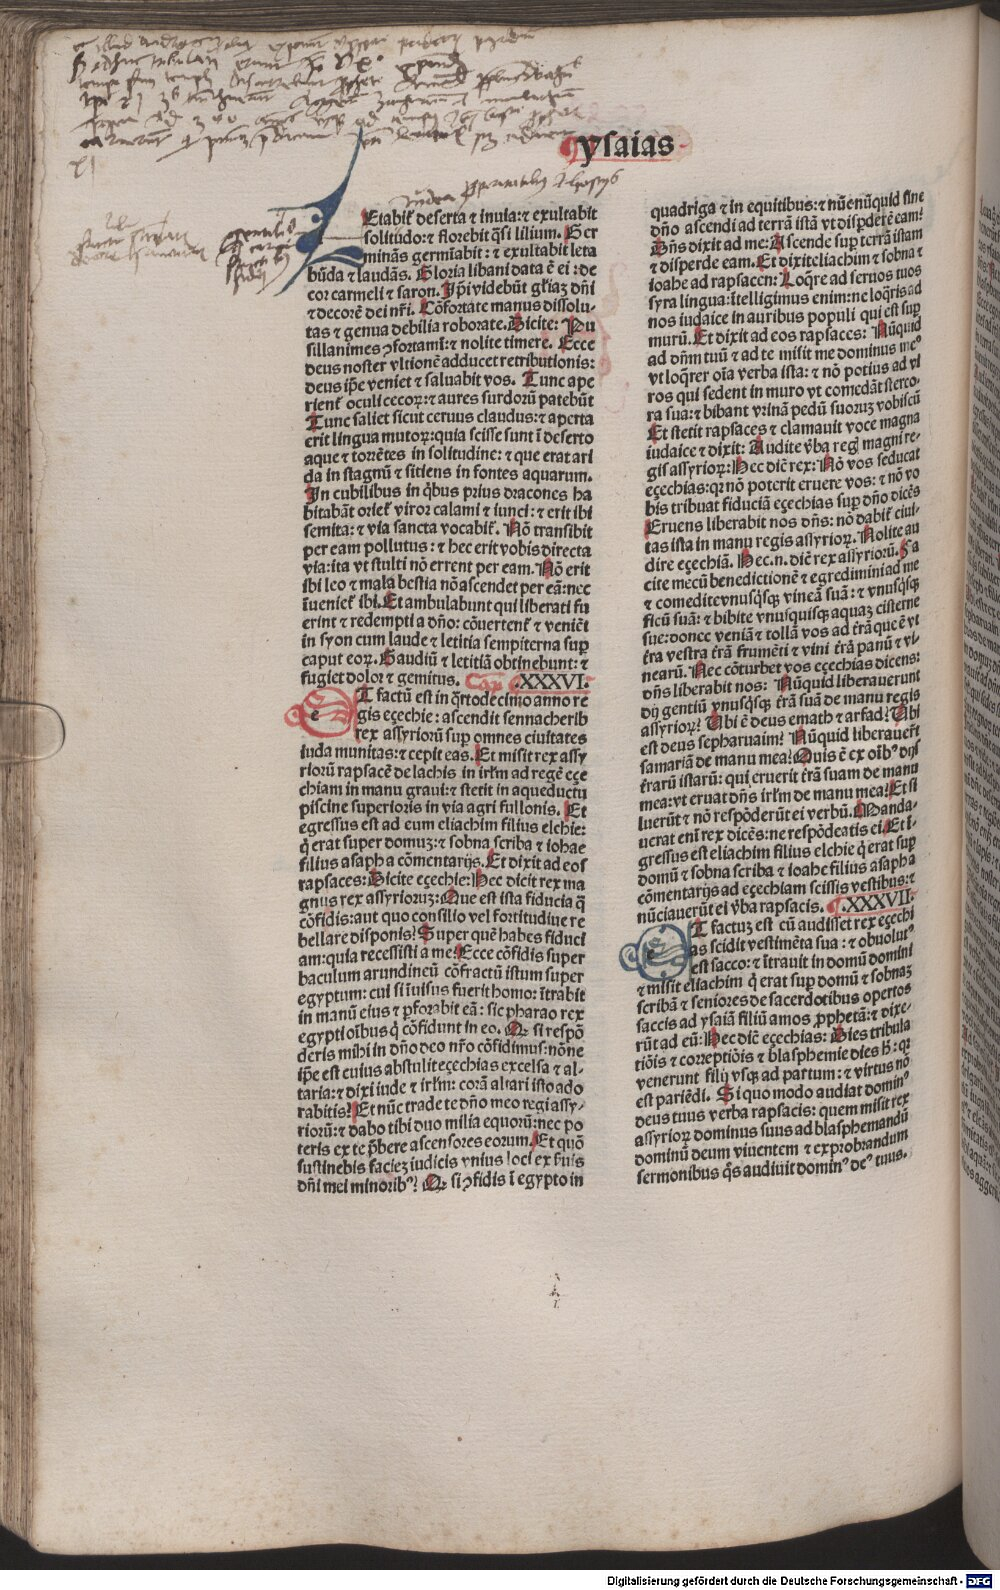 ysaias
Etabiť deserta ⁊ inuia:⁊ exultabit
solitudo:⁊ florebit q̄si lilium. Ger
minās germīabit: ⁊ exultabit leta
būda ⁊ laudās. Gloria libani data ē ei: de
cor carmeli ⁊ saron. Ip̄i videbūt gl̄iaꝫ dn̄i
⁊ decorē dei nr̄i. Cōfortate manus dissolu-
tas ⁊ genua debilia roborate. Dicite: Pu
sillanimes ꝯfortamī:⁊ nolite timere. Ecce
deus noster vltionē adducet retributionis:
deus ip̄e veniet ⁊ saluabit vos. Tunc ape
rienť oculi cecoꝝ:⁊ aures surdorū patebūt
Tunc saliet sicut ceruus claudus:⁊ aperta
erit lingua mutoꝝ:quia scisse sunt ī deserto
aque ⁊ torrētes in solitudine: ⁊ que erat ari
da in stagnū ⁊ sitiens in fontes aquarum.
In cubilibus in q̇bus prius dracones ha
bitabāt orieť viror calami ⁊ iunci: ⁊ erit ibi
semita: ⁊ via sancta vocabiť. Nō transibit
per eam pollutus: ⁊ hec erit vobis directa
via:ita vt stulti nō errent per eam. Nō erit
ibi leo ⁊ mala bestia nō ascendet per eā:nec
īuenieť ibi. Et ambulabunt qui liberati fu
erint ⁊ redempti a dño: cōuertenť ⁊ veniēt
in syon cum laude ⁊ letitia sempiterna sup̱
caput eoꝝ. Gaudiū ⁊ letitiā obtinebunt: ⁊
fugiet dolor ⁊ gemitus. Cap .XXXVI.
e T factū est in q̄rtodecimo anno re
gis eçechie: ascendit sennacherib
rex assyriorū sup̱ omnes ciuitates
iuda munitas:⁊ cepit eas. Et misit rex assy
riorū rapsacē de lachis in irl̄m ad regē eçe
chiam in manu graui:⁊ stetit in aqueductu
piscine superioris in via agri fullonis. Et
egressus est ad eum eliachim filius elchie:
q̇ erat super domuꝫ:⁊ sobna scriba ⁊ iohae
filius asaph a cōmentarijs. Et dixit ad eos
rapsaces: Dicite eçechie: Hec dicit rex ma
gnus rex assyrioruꝫ: Que est ista fiducia q̄
cōfidis: aut quo consilio vel fortitudine re
bellare disponis? Super quē habes fiduci
am:quia recessisti a me? Ecce cōfidis super
baculum arundineū cōfractū istum super
egyptum: cui si īuisus fuerit homo: ītrabit
in manū eius ⁊ ꝑforabit eā: sic pharao rex
egypti oībus q̇ cōfidunt in eo. Qꝛ si respō
deris mihi in dño deo nr̄o cōfidimus:nōne
ip̄e est cuius abstulit eçechias excelsa ⁊ al-
taria:⁊ dixi iude ⁊ irl̄m: corā altari isto ado
rabitis? Et nūc trade te dño meo regi assy-
riorū:⁊ dabo tibi duo milia equorū:nec po
teris ex te p̄bere ascensores eorum. Et quō
sustinebis facieꝫ iudicis vnius loci ex s̄uis
dn̄i mei minoribꝰ? Qꝛ si ꝯfidis ī egypto in
quadriga ⁊ in equitibus:⁊ nūc nūquid sine
dño ascendi ad terrā istā vt disp̱derē eam?
Dn̄s dixit ad me: Ascende sup̱ terrā istam
⁊ disperde eam. Et dixit eliachim ⁊ sobna ⁊
ioahe ad rapsacen: Loq̄re ad seruos tuos
syra lingua: ītelligimus enim:ne loq̄ris ad
nos iudaice in auribus populi qui est sup̱
murū. Et dixit ad eos rapsaces: Nūquid
ad dn̄m tuū ⁊ ad te misit me dominus meꝰ
vt loq̄rer oīa verba ista: ⁊ nō potius ad vi
ros qui sedent in muro vt comedāt sterco-
ra sua:⁊ bibant vrinā pedū suoruꝫ vobiscū
Et stetit rapsaces ⁊ clamauit voce magna
iudaice ⁊ dixit: Audite v̄ba reg̃ magni re-
gis assyrioꝝ: Hec dic̄ rex: Nō vos seducat
eçechias:qꝛ nō poterit eruere vos: ⁊ nō vo
bis tribuat fiduciā eçechias sup̱ dño dicēs
Eruens liberabit nos dn̄s: nō dabiť ciui-
tas ista in manu regis assyrioꝝ. Nolite au
dire eçechiā. Hec.n. dic̄ rex assyriorū. Fa
cite mecū benedictionē ⁊ egredimini ad me
⁊ comedite vnusq̇sqꝫ vineā suā: ⁊ vnusq̇sqꝫ
ficū suā: ⁊ bibite vnusquisqꝫ aquaꝫ cisterne
sue: donec veniā ⁊ tollā vos ad t̄rā que ē vt
t̄ra vestra t̄rā frumēti ⁊ vini t̄rā panū ⁊ vi-
nearū. Nec cōturbet vos eçechias dicens:
dn̄s liberabit nos: Nūquid liberauerunt
dij gentiū vnusq̇sqꝫ t̄rā suā de manu regis
assyrioꝝ? Ubi ē deus emath ⁊ arfad? Ubi
est deus sepharuaim? Nūquid liberauer̄t
samariā de manu mea? Quis ē ex oībꝰ dijs
t̄rarū istarū: qui eruerit t̄rā suam de manu
mea: vt eruat dn̄s irl̄m de manu mea? Et si
luerūt ⁊ nō respōderūt ei verbū. Manda-
uerat enī rex dicēs:ne respōdeatis ei. Et ī-
gressus est eliachim filius elchie q̇ erat sup̱
domū ⁊ sobna scriba ⁊ ioahe filius asaph a
cōmentarijs ad eçechiam scissis vestibus:⁊
nūciauerūt ei v̄ba rapsacis. .XXXVII.
e T factuꝫ est cū audisset rex eçechi
as scidit vestimēta sua : ⁊ obuolutꝰ
est sacco: ⁊ ītrauit in domū domini
⁊ misit eliachim q̇ erat sup̱ domū ⁊ sobnaꝫ
scribā ⁊ seniores de sacerdotibus opertos
saccis ad ysaiā filiū amos ꝓphetā: ⁊ dixe-
rūt ad eū: Hec dic̄ eçechias: Dies tribula
tiōis ⁊ correptiōis ⁊ blasphemie dies h̄: qꝛ
venerunt filij vsqꝫ ad partum: ⁊ virtus nō
est pariēdi. Si quo modo audiat dominꝰ
deus tuus verba rapsacis: quem misit rex
assyrioꝝ dominus suus ad blasphemandū
dominū deum viuentem ⁊ exprobrandum
sermonibus q̇s audiuit dominꝰ deꝰ tuus.
Digitalisierung gefördert durch die Deutsche Forschungsgemeinschaft - DFG